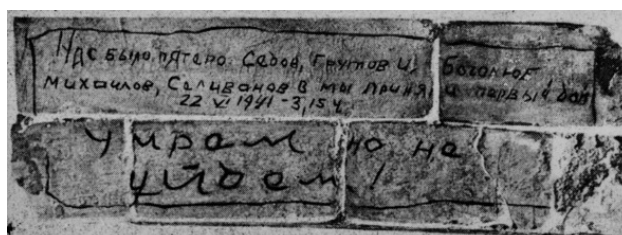 Нас было пятеро Седов, Грутов И, Боголюб,
Михайлов, Селиванов В мы приняли первый бой
22 VI 1941 - 3,15 ч
умрем но не
уйдем!